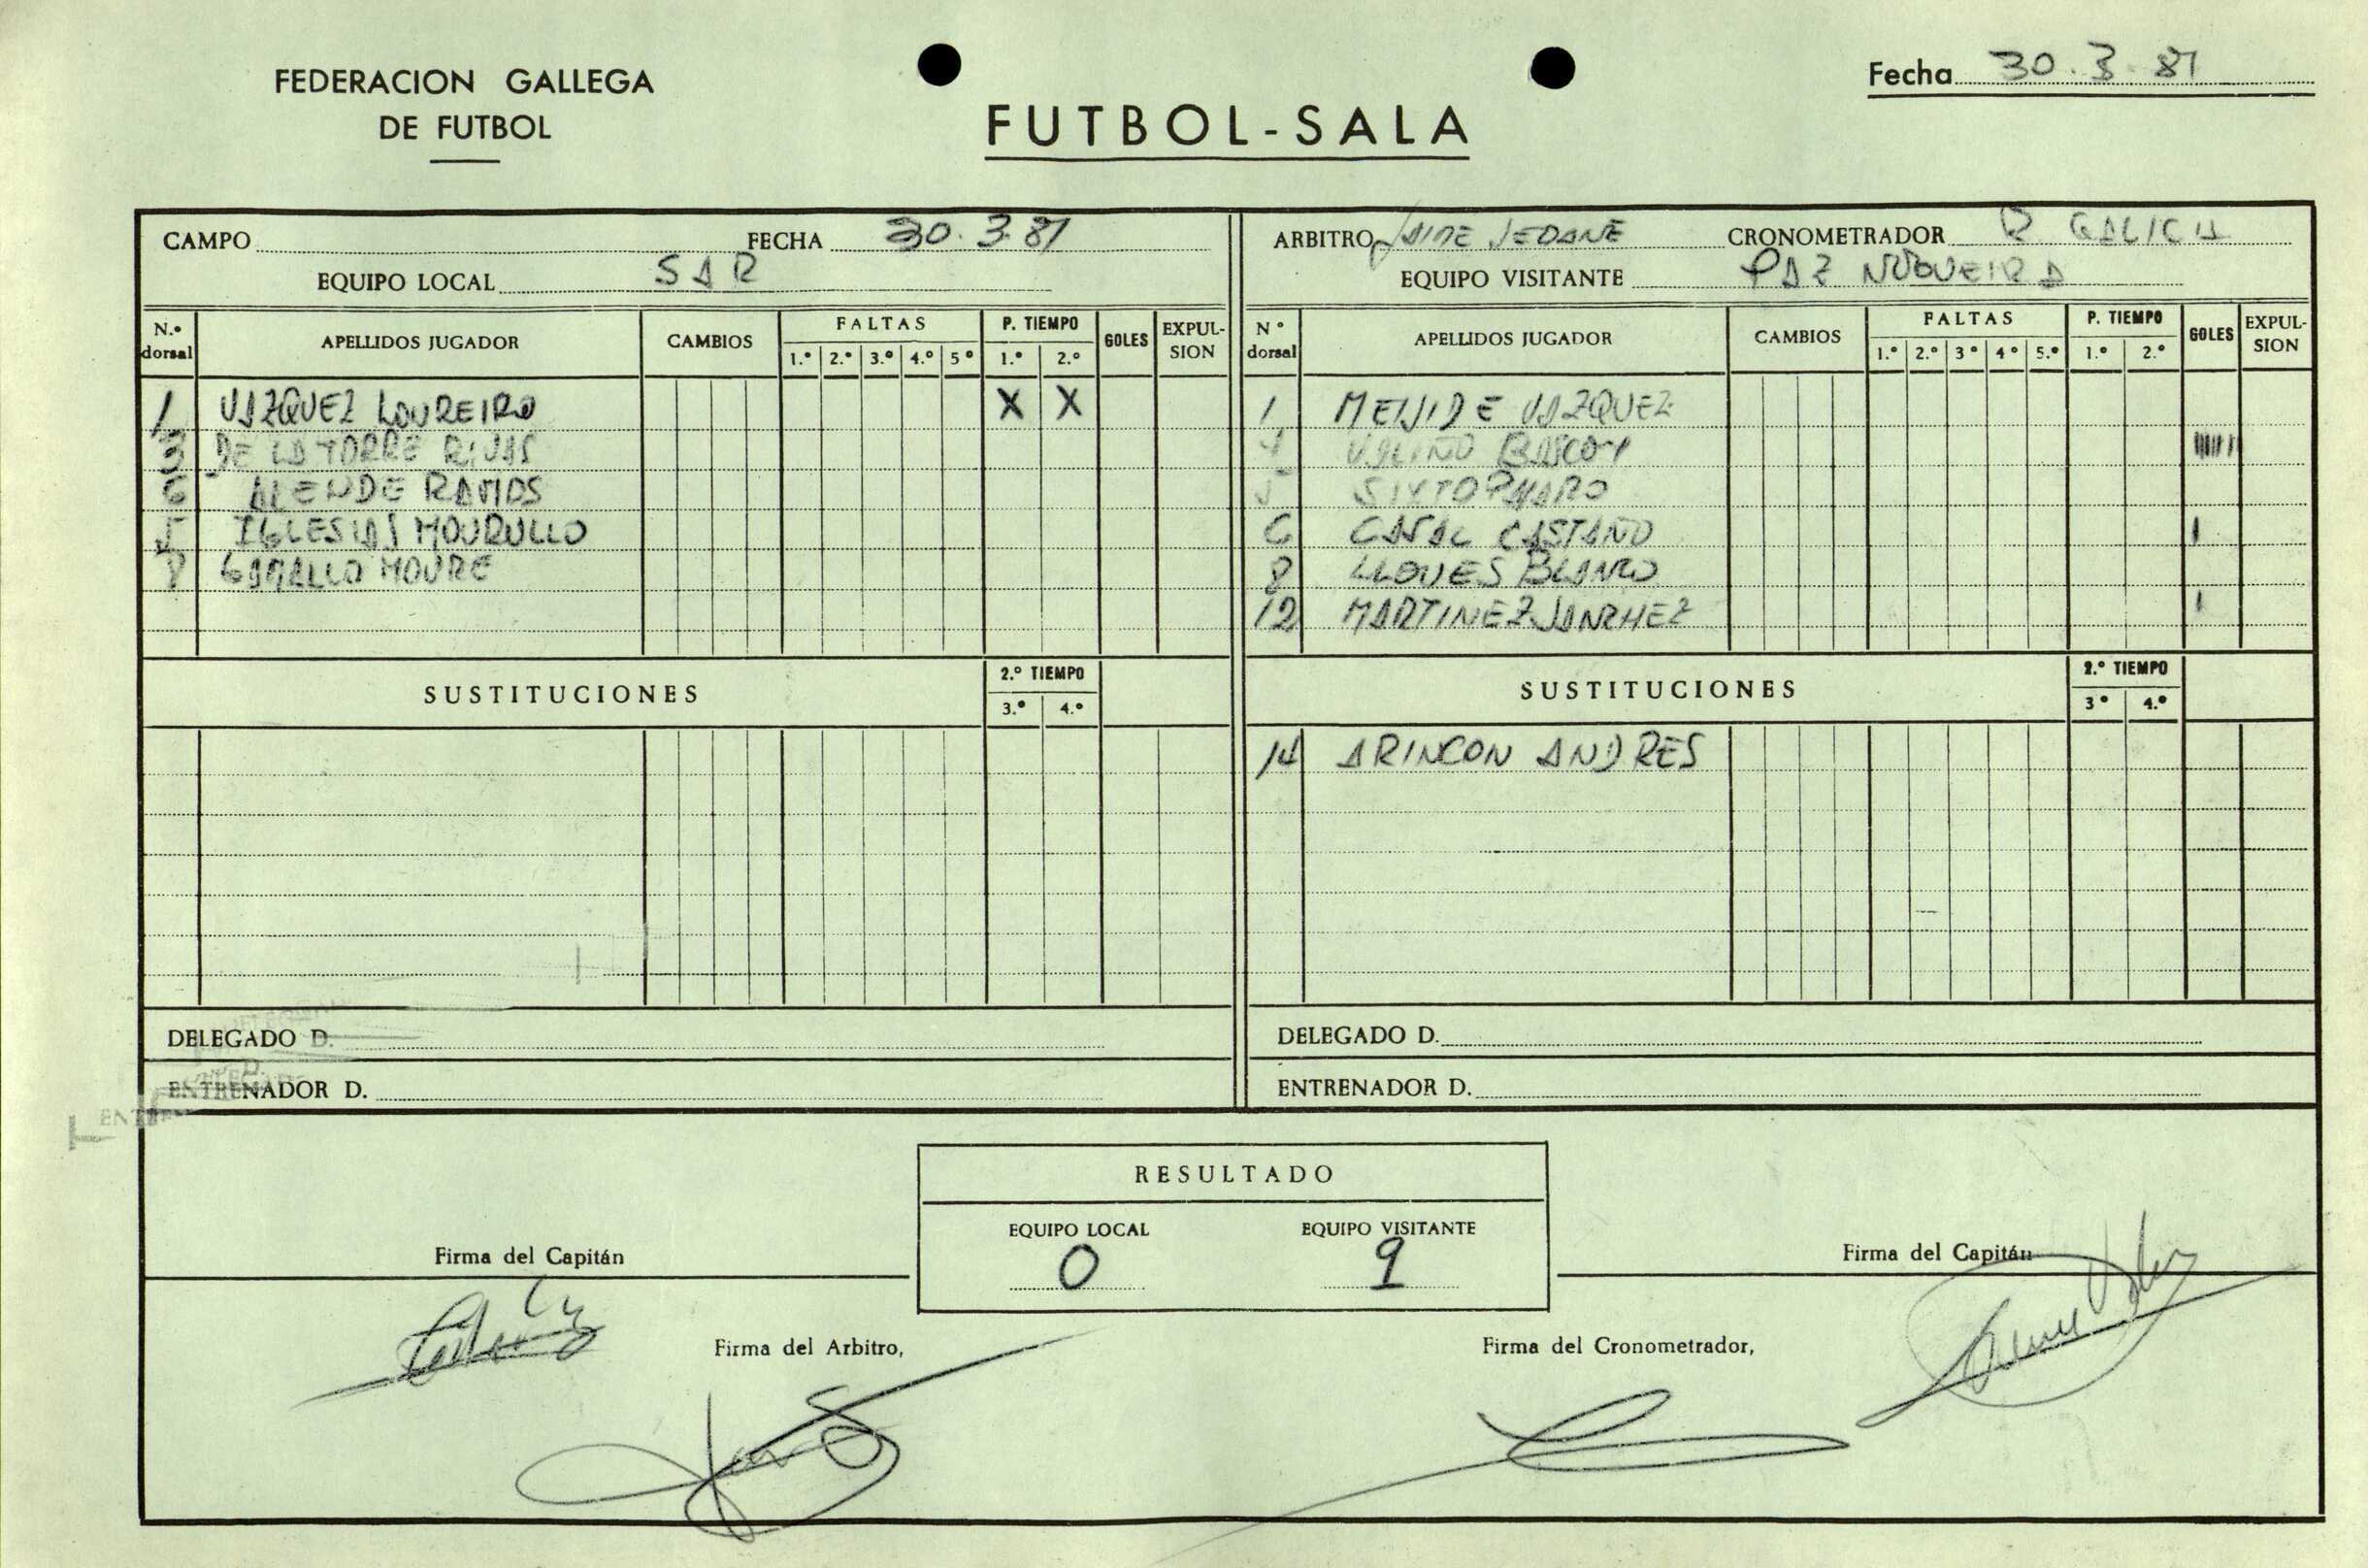 FEDERACION GALLEGA
DE FUTBOL
FUTBOL-SALA
Fecha 30.3.81
CAMPO FECHA 30.3.81
EQUIPO LOCAL SAR
ARBITRO JAIME SEOANE CRONOMETRADOR R. GALICIA
EQUIPO VISITANTE PAZ NOGUEIRA
N.º dorsal APELLIDOS JUGADOR CAMBIOS FALTAS 1.º 2.º 3.º 4.º 5º P. TIEMPO 1.º 2.º GOLES EXPULSION
1 VAZQUEZ LOUREIRO X X
3 DE LA TORRE RIVAS
6 ALENDE RAMOS
5 IGLESIAS MOURULLO
8 GAMALLO MOURE
N º dorsal APELLIDOS JUGADOR CAMBIOS FALTAS 1.º 2.º 3º 4º 5.º P. TIEMPO 1.º 2.º GOLES EXPULSION
1 MEIJIDE VAZQUEZ
4 VALIÑO BASCOY
5 SIXTO
6 CASAL CASTAÑO I
8 LLOVES BLANCO
12 MARTINEZ SANCHEZ I
SUSTITUCIONES 2.º TIEMPO 3.º 4.º
SUSTITUCIONES 2.º TIEMPO 3º 4.º
14 ARINCON ANDRES
DELEGADO D.
ENTRENADOR D.
DELEGADO D.
ENTRENADOR D.
RESULTADO
EQUIPO LOCAL EQUIPO VISITANTE
0 9
Firma del Capitán
Firma del Capitán
Firma del Arbitro,
Firma del Cronometrador,